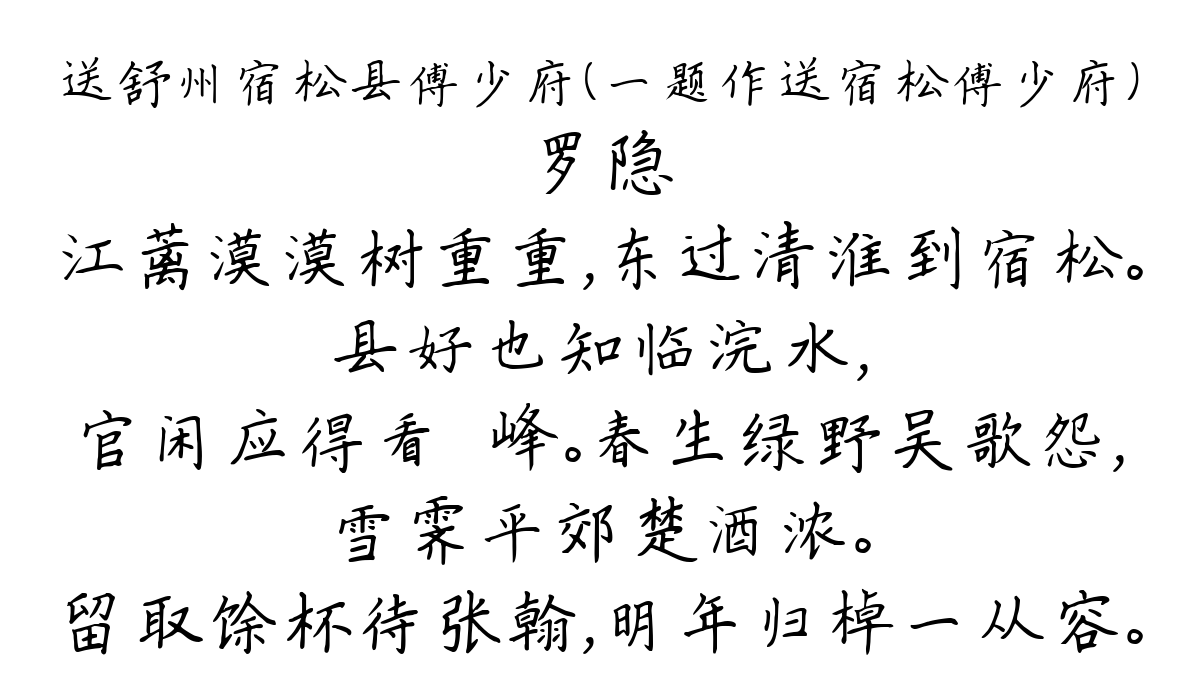 送舒州宿松县傅少府(一题作送宿松傅少府)
罗隐
江蓠漠漠树重重,东过清淮到宿松。
县好也知临浣水,
官闲应得看 峰。春生绿野吴歌怨,
雪霁平郊楚酒浓。
留取馀杯待张翰,明年归棹一从容。